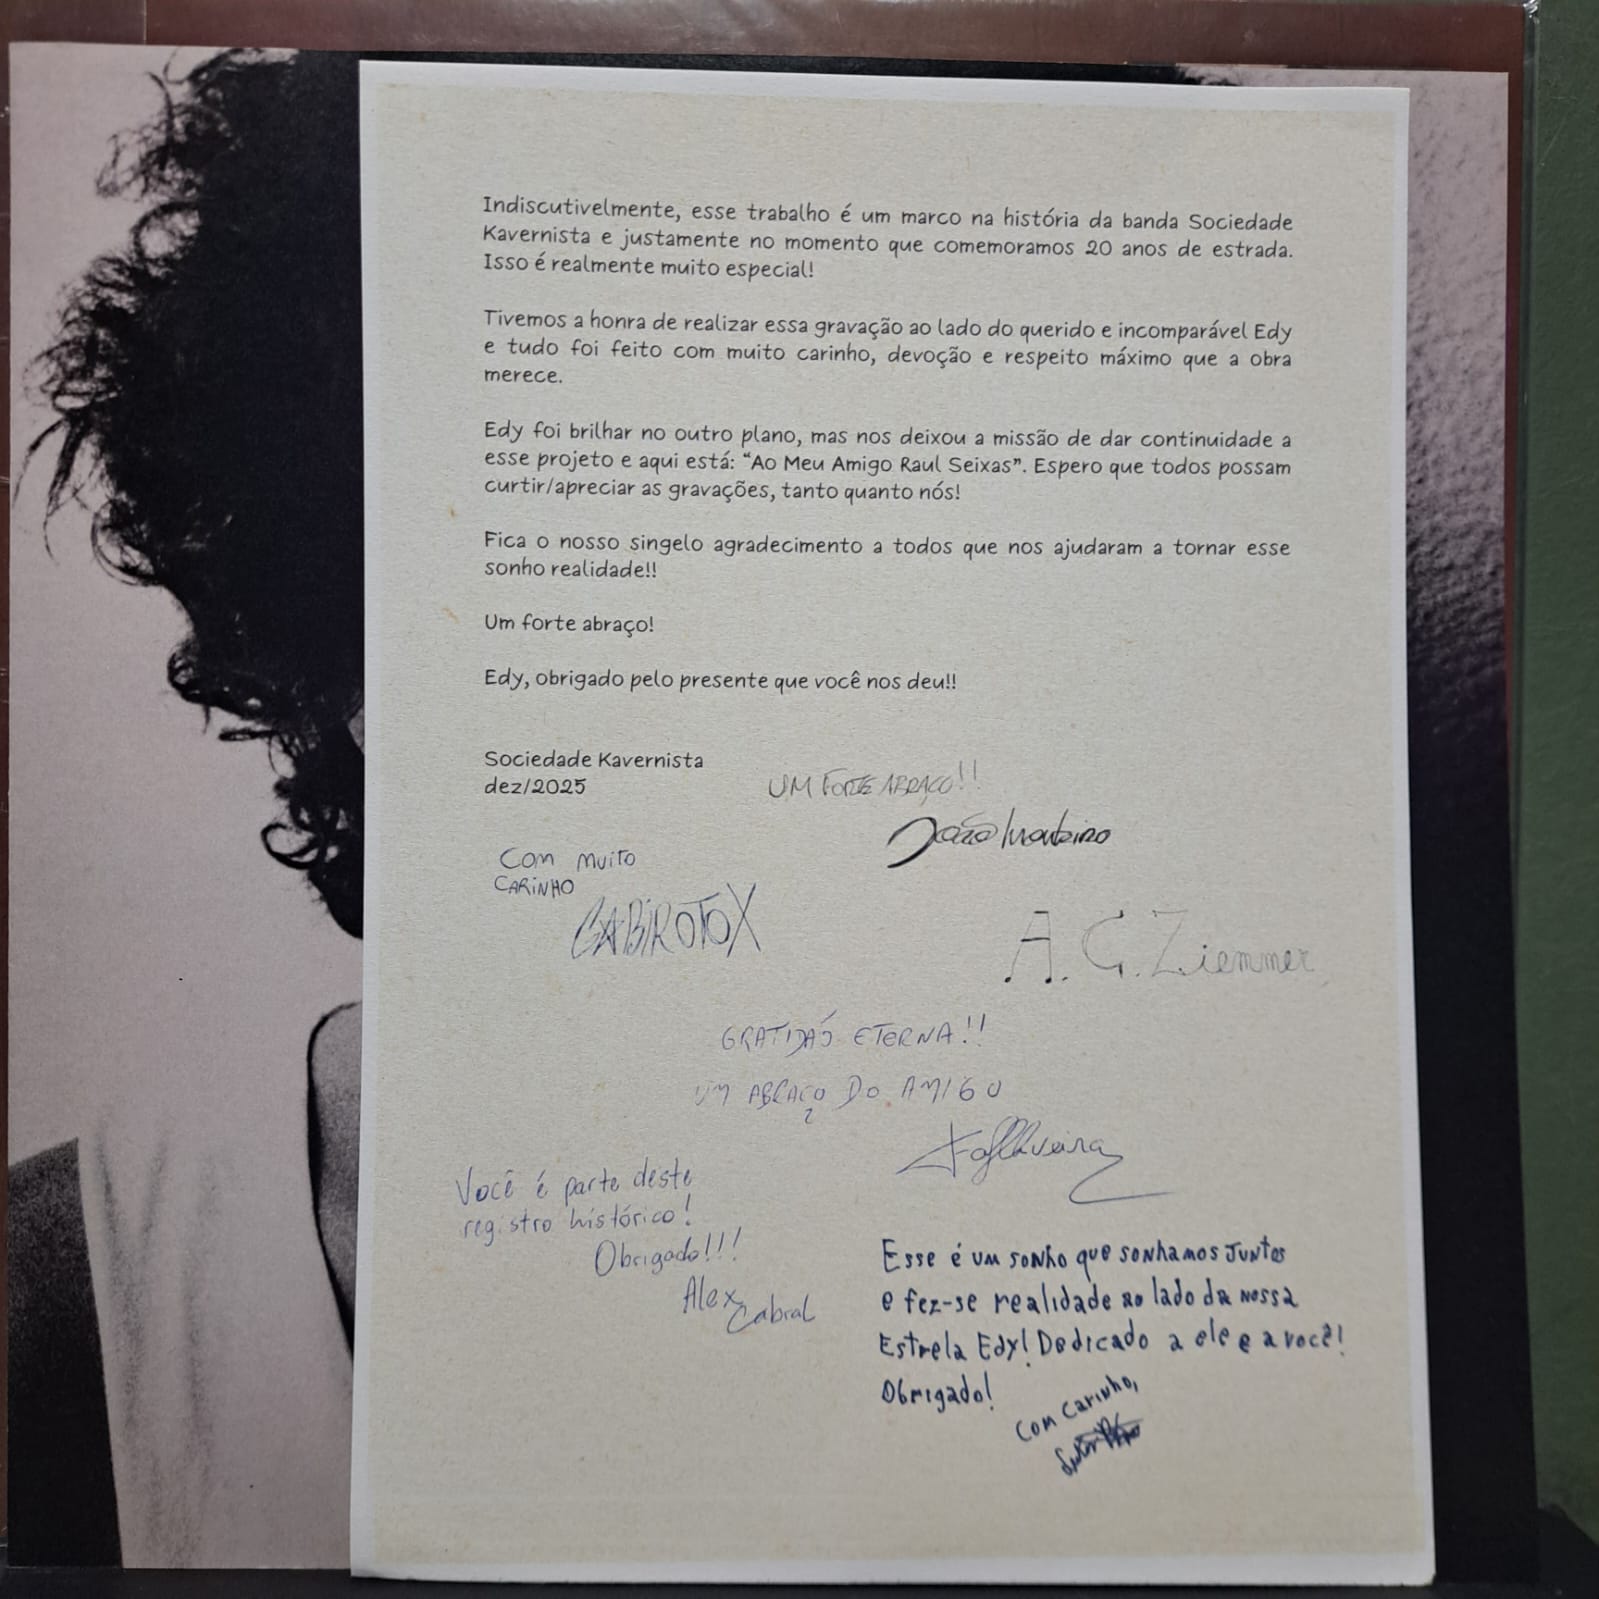 Indiscutivelmente, esse trabalho é um marco na história da banda Sociedade
Kavernista e justamente no momento que comemoramos 20 anos de estrada.
Isso é realmente muito especial!
Tivemos a honra de realizar essa gravação ao lado do querido e incomparável Edy
e tudo foi feito com muito carinho, devoção e respeito máximo que a obra
merece.
Edy foi brilhar no outro plano, mas nos deixou a missão de dar continuidade a
esse projeto e aqui está: “Ao Meu Amigo Raul Seixas”. Espero que todos possam
curtir/apreciar as gravações, tanto quanto nós!
Fica o nosso singelo agradecimento a todos que nos ajudaram a tornar esse
sonho realidade!!
Um forte abraço!
Edy, obrigado pelo presente que você nos deu!!
Sociedade Kavernista
dez/2025
UM FORTE ABRAÇO!!
João Monteiro
Com muito
CARINHO
GABIROTOX
A. G. Ziemmer
GRATIDÃO ETERNA!!
UM ABRAÇO DO AMIGO
Você é parte deste
registro histórico!
Obrigado!!!
Alex
Cabral
Esse é um sonho que sonhamos juntos
e fez-se realidade ao lado da nossa
Estrela Edy! Dedicado a ele e a você!
Obrigado!
Com carinho,